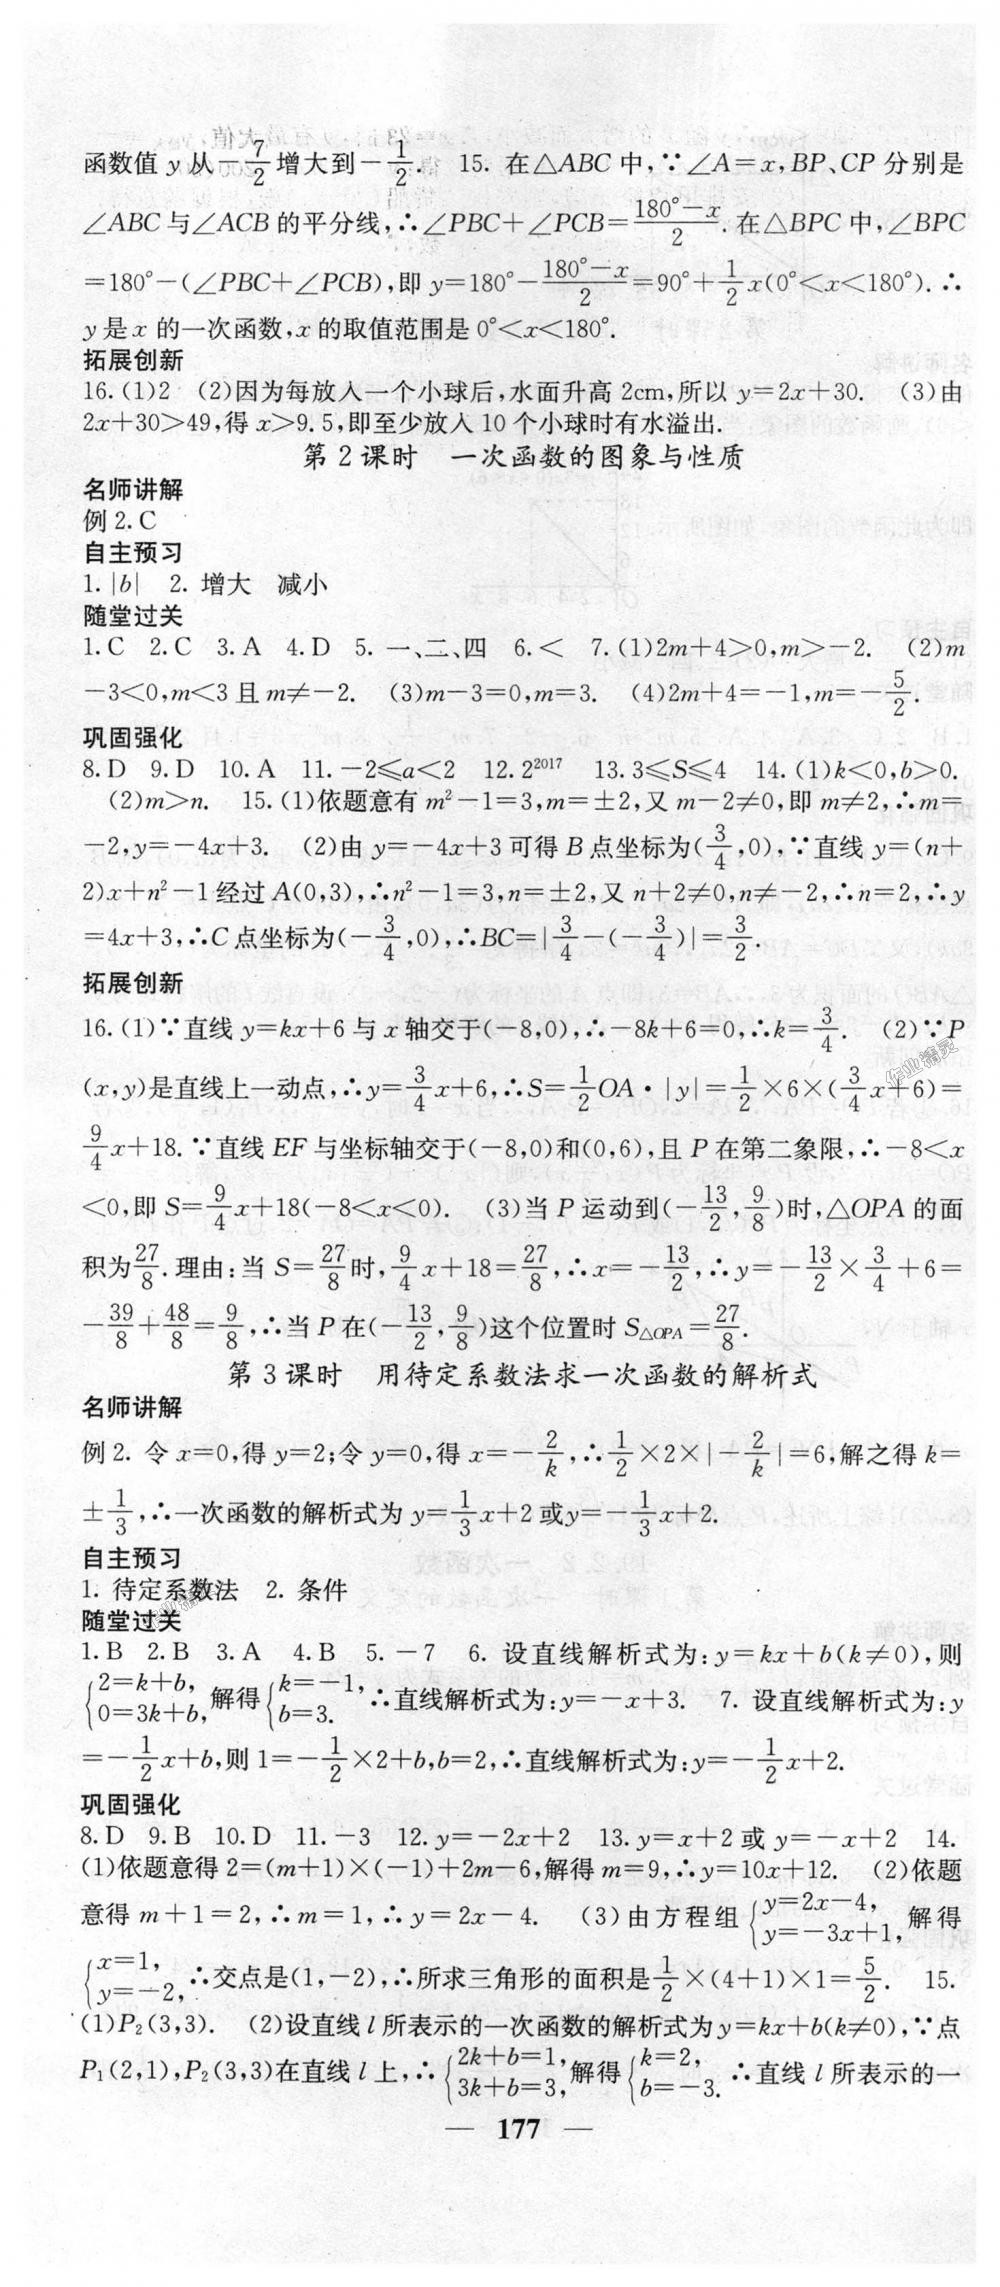 函数值 y 从 −7/2 增大到 −1/2. 15. 在△ABC 中,∵∠A=x,BP、CP 分别是
∠ABC 与∠ACB 的平分线,∴∠PBC+∠PCB=(180°−x)/2. 在△BPC 中,∠BPC
=180°−(∠PBC+∠PCB),即 y=180°−(180°−x)/2=90°+1/2x(0°<x<180°).∴
y 是 x 的一次函数,x 的取值范围是 0°<x<180°.
拓展创新
16.(1)2 (2)因为每放入一个小球后,水面升高 2cm,所以 y=2x+30. (3)由
2x+30>49,得 x>9.5,即至少放入 10 个小球时有水溢出.
第 2 课时 一次函数的图象与性质
名师讲解
例 2.C
自主预习
1.|b| 2. 增大 减小
随堂过关
1.C 2.C 3.A 4.D 5. 一、二、四 6.< 7.(1)2m+4>0,m>−2. (2)m
−3<0,m<3 且 m≠−2. (3)m−3=0,m=3. (4)2m+4=−1,m=−5/2.
巩固强化
8.D 9.D 10.A 11.−2≤a<2 12.2²⁰¹⁷ 13.3≤S≤4 14.(1)k<0,b>0.
(2)m>n. 15.(1)依题意有 m²−1=3,m=±2,又 m−2≠0,即 m≠2,∴m=
−2,y=−4x+3. (2)由 y=−4x+3 可得 B 点坐标为(3/4,0),∵直线 y=(n+
2)x+n²−1 经过 A(0,3),∴n²−1=3,n=±2,又 n+2≠0,n≠−2,∴n=2,∴y
=4x+3,∴C 点坐标为(−3/4,0),∴BC=|3/4−(−3/4)|=3/2.
拓展创新
16.(1)∵直线 y=kx+6 与 x 轴交于(−8,0),∴−8k+6=0,∴k=3/4. (2)∵P
(x,y)是直线上一动点,∴y=3/4x+6,∴S=1/2OA·|y|=1/2×6×(3/4x+6)=
9/4x+18.∵直线 EF 与坐标轴交于(−8,0)和(0,6),且 P 在第二象限,∴−8<x
<0,即 S=9/4x+18(−8<x<0). (3)当 P 运动到(−13/2,9/8)时,△OPA 的面
积为27/8.理由:当 S=27/8时,9/4x+18=27/8,∴x=−13/2,∴y=−13/2×3/4+6=
−39/8+48/8=9/8,∴当 P 在(−13/2,9/8)这个位置时 S△OPA=27/8.
第 3 课时 用待定系数法求一次函数的解析式
名师讲解
例 2. 令 x=0,得 y=2;令 y=0,得 x=−2/k,∴1/2×2×|−2/k|=6,解之得 k=
±1/3,∴一次函数的解析式为 y=1/3x+2 或y=−1/3x+2.
自主预习
1. 待定系数法 2. 条件
随堂过关
1.B 2.B 3.A 4.B 5.−7 6. 设直线解析式为:y=kx+b(k≠0),则
{2=k+b, 0=3k+b,解得{k=−1, b=3. ∴直线解析式为:y=−x+3. 7. 设直线解析式为:y
=−1/2x+b,则 1=−1/2×2+b,b=2,∴直线解析式为:y=−1/2x+2.
巩固强化
8.D 9.B 10.D 11.−3 12.y=−2x+2 13.y=x+2 或 y=−x+2 14.
(1)依题意得 2=(m+1)×(−1)+2m−6,解得 m=9,∴y=10x+12. (2)依题
意得 m+1=2,∴m=1,∴y=2x−4. (3)由方程组{y=2x−4, y=−3x+1,解得
{x=1, y=−2, ∴交点是(1,−2),∴所求三角形的面积是1/2×(4+1)×1=5/2. 15.
(1)P₂(3,3). (2)设直线 l 所表示的一次函数的解析式为 y=kx+b(k≠0),∵点
P₁(2,1),P₂(3,3)在直线 l 上,∴{2k+b=1, 3k+b=3,解得{k=2, b=−3. ∴直线 l 所表示的一
— 177 —